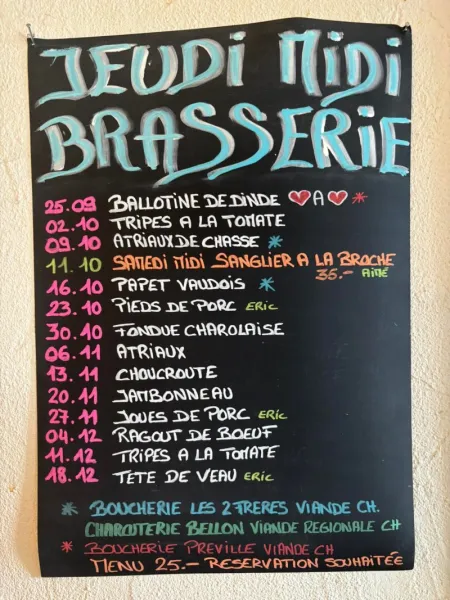 JEUDI MIDI
BRASSERIE
25.09 BALLOTINE DE DINDE ❤A❤ *
02.10 TRIPES A LA TOMATE
09.10 ATRIAUX DE CHASSE *
11.10 SAMEDI MIDI SANGLIER A LA BROCHE
35.- AIMÉ
16.10 PAPET VAUDOIS *
23.10 PIEDS DE PORC ERIC
30.10 FONDUE CHAROLAISE
06.11 ATRIAUX
13.11 CHOUCROUTE
20.11 JAMBONNEAU
27.11 JOUES DE PORC ERIC
04.12 RAGOUT DE BOEUF
11.12 TRIPES A LA TOMATE
18.12 TETE DE VEAU ERIC
* BOUCHERIE LES 2 FRERES VIANDE CH.
CHARCUTERIE BELLON VIANDE REGIONALE CH
* BOUCHERIE PREVILLE VIANDE CH
MENU 25.- RESERVATION SOUHAITÉE